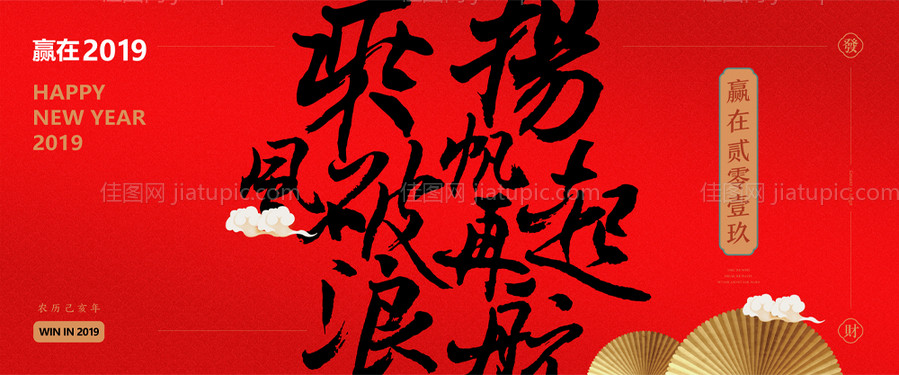 赢在2019
HAPPY
NEW YEAR
2019
农历己亥年
WIN IN 2019
乘
風
破
浪
揚
帆
再
起
航
赢在贰零壹玖
發
財
佳图网 jiatupic.com
佳图网 jiatupic.com
佳图网 jiatupic.com